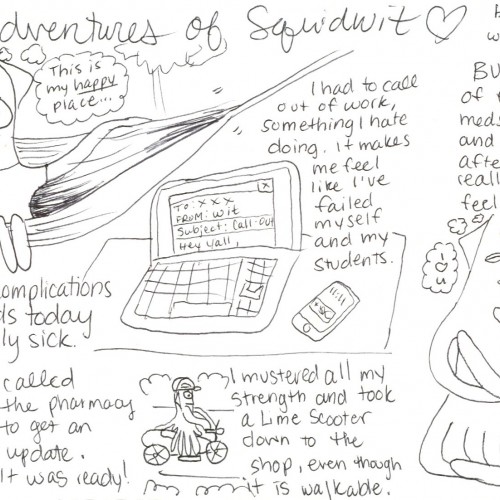 dventures of Squidwit ♡
This is
my happy
place...
I had to call
out of work,
something I hate
doing. It makes
me feel
like I've
failed
myself
and my
students.
To: x x x
FROM: wit
Subject: Call-Out
Hey yall,
omplications
ds today
ly sick.
called
the pharmacy
to get an
update.
It was ready!
I mustered all my
strength and took
a Lime Scooter
down to the
shop, even though
it is walkable.
H
w
Bu
of t
meds
and
afte
reall
feel
I ♡ U